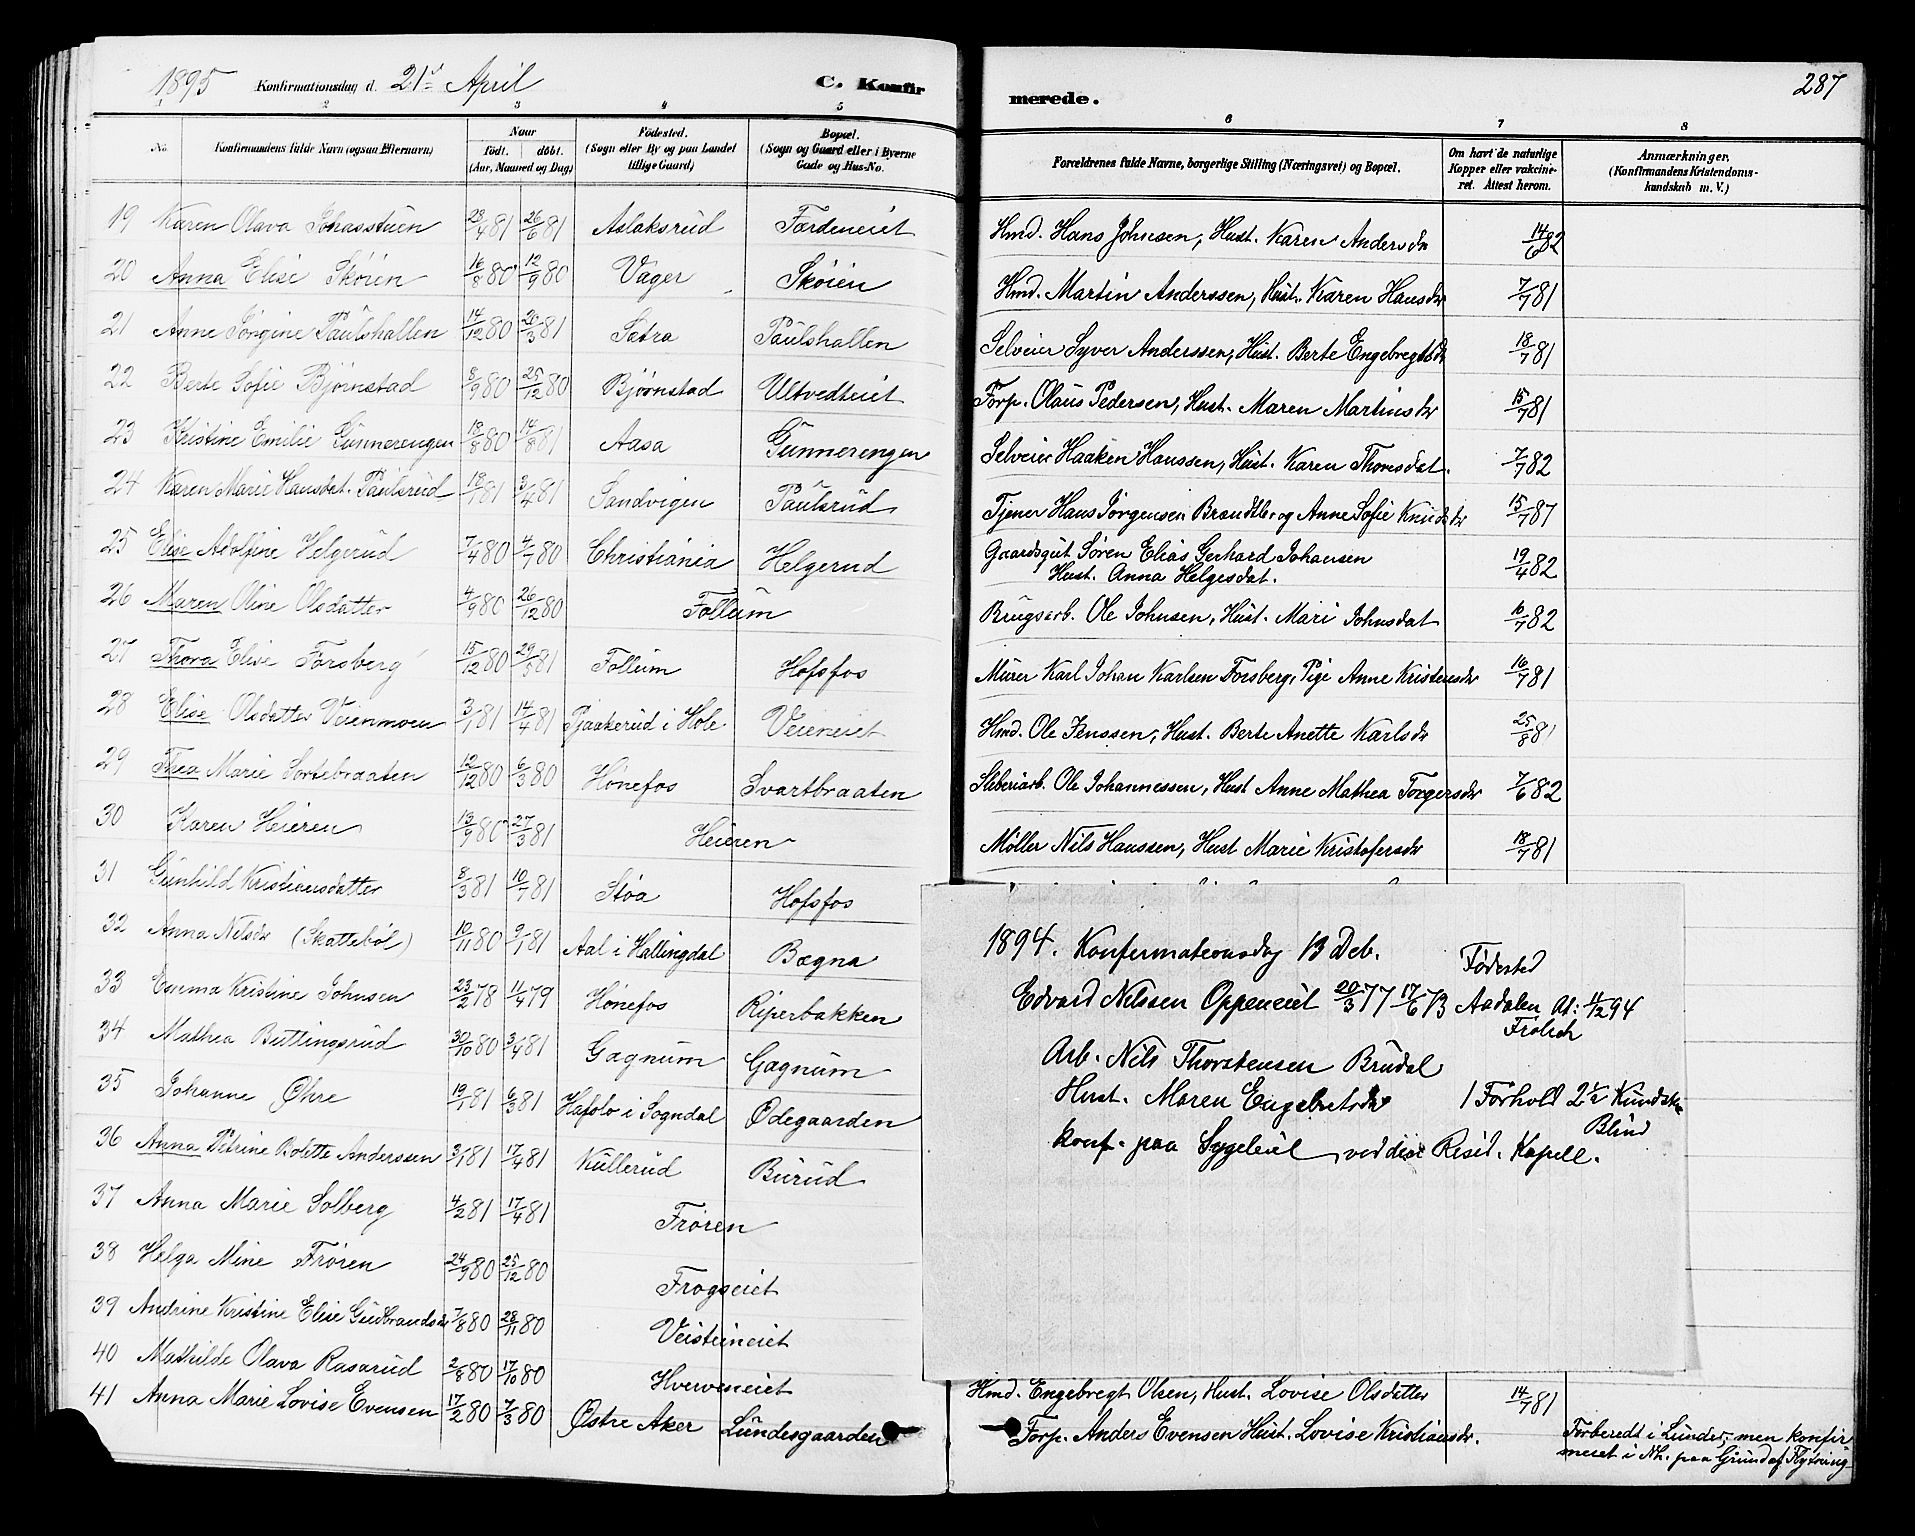 1895 Konfirmationsdag d. 21d April C. Konfirmerede. 287
2 3 4 5 6 7 8
No. Konfirmandens fulde Navn (ogsaa Efternavn) Naar født. døbt. (Aar, Maaned og Dag) Fødested. (Sogn eller By og paa Landet tillige Gaard) Bopæl. (Sogn og Gaard eller i Byerne Gade og Hus-No. Forældrenes fulde Navne, borgerlige Stilling (Næringsvei) og Bopæl. Om havt de naturlige Kopper eller vakcineret. Attest herom. Anmærkninger, (Konfirmandens Kristendomskundskab m. V.)
19 Karen Olava Johasstuen 23/4 81 26/6 81 Aslaksrud Færdeneiet Hmd. Hans Johnsen, Hust. Karen Andersdr 14/6 82
20 Anna Elise Skøien 16/8 80 12/9 80 Vager Skøien Hmd. Martin Anderssen, Hust. Karen Hansdr 7/7 81
21 Anne Jørgine Paulshallen 14/12 80 20/3 81 Sætra Paulshallen Selveier Syver Anderssen, Hust. Berte Engebregtsdr 18/7 81
22 Berte Sofie Bjørnstad 8/9 80 25/12 80 Bjørnstad Ultvedteiet Forp. Olaus Pedersen, Hust. Maren Martinsdr 15/7 81
23 Kristine Emilie Gunnerengen 18/8 80 14/8 81 Aasa Gunnerengen Selveier Haaken Hanssen, Hust. Karen Thoresdat. 7/7 82
24 Karen Marie Hansdat. Paulsrud 18/1 81 3/4 81 Sandvigen Paulsrud Tjener Hans Jørgensen Brandtbr og Anne Sofie Knudsdr 15/7 87
25 Elise Adolfine Helgerud 7/4 80 4/7 80 Christiania Helgerud Gaardsgut Søren Elias Gerhard Johansen
Hust. Anna Helgesdat. 19/4 82
26 Maren Oline Olsdatter 4/9 80 26/12 80 Follum Brugsarb. Ole Johnsen, Hust. Mari Johnsdat 10/7 82
27 Thora Elise Forsberg 15/12 80 29/5 81 Follum Hofsfos Murer Karl Johan Karlsen Forsberg, Pige Anne Kristensdr 16/7 81
28 Elise Olsdatter Veienmoen 3/1 81 14/4 81 Pjaakerud i Hole Veieneiet Hmd. Ole Jenssen, Hust. Berte Anette Karlsdr 25/8 81
29 Thea Marie Sortebraaten 12/12 80 6/3 80 Hønefos Svartbraaten Sliberiarb. Ole Johannessen, Hust Anne Mathea Torgersdr 7/6 82
30 Karen Heieren 13/9 80 27/3 81 Heieren Møller Nils Hanssen, Hust Marie Kristofersdr 18/7 81
31 Gunhild Kristiansdatter 8/3 81 10/7 81 Støa Hofsfos
32 Anna Nelsdr (Skattebøl) 10/11 80 9/1 81 Aal i Hallingdal Bægna
33 Emma Kristine Johnsen 23/2 78 11/4 79 Hønefos Riperbakken
34 Mathea Buttingsrud 30/10 80 3/4 81 Gagnum Gagnum
35 Johanne Øhre 19/1 81 6/3 81 Hafslo i Sogndal Ødegaarden
36 Anna Petrine Bolette Anderssen 3/1 81 17/4 81 Kullerud Burud
37 Anna Marie Solberg 4/2 81 17/4 81 Frøren
38 Helga Mine Frøren 24/9 80 25/12 80 Frogseiet
39 Andrine Kristine Elise Gudbrandsdr 7/8 80 28/11 80 Veisteineiet
40 Mathilde Olava Rasarud 2/8 80 17/10 80 Hverveneiet Hmd. Engebregt Olsen, Hust. Lovise Olsdatter 14/7 81
41 Anna Marie Lovise Evensen 17/2 80 7/3 80 Østre Aker Lundesgaarden Forp. Anders Evensen Hust. Lovise Kristiansdr. Forberedt i Lunder, men konfirmeret i Nh. paa Grund af Flytning
1894. Konfermationsdag 13 Deb.
Fødested
Edvard Nilssen Oppeneiet 20/3 77 17/6 73 Aadalen At: 11/12 94
Frølich
Arb. Nils Thorstensen Brudal
Hust. Maren Engebretsdr 1 Forhold 2 1/2 Kundsk
Blind
konf. paa Sygeleiet ved Resid. Kapell.